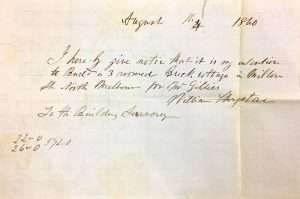 August 1860
I hereby give notice that it is my intention
to Build a 3 roomed Brick cottage in Miller
St North Melbourne for Mr Gillies
William
To the Building Surveyor
22-0
26-0